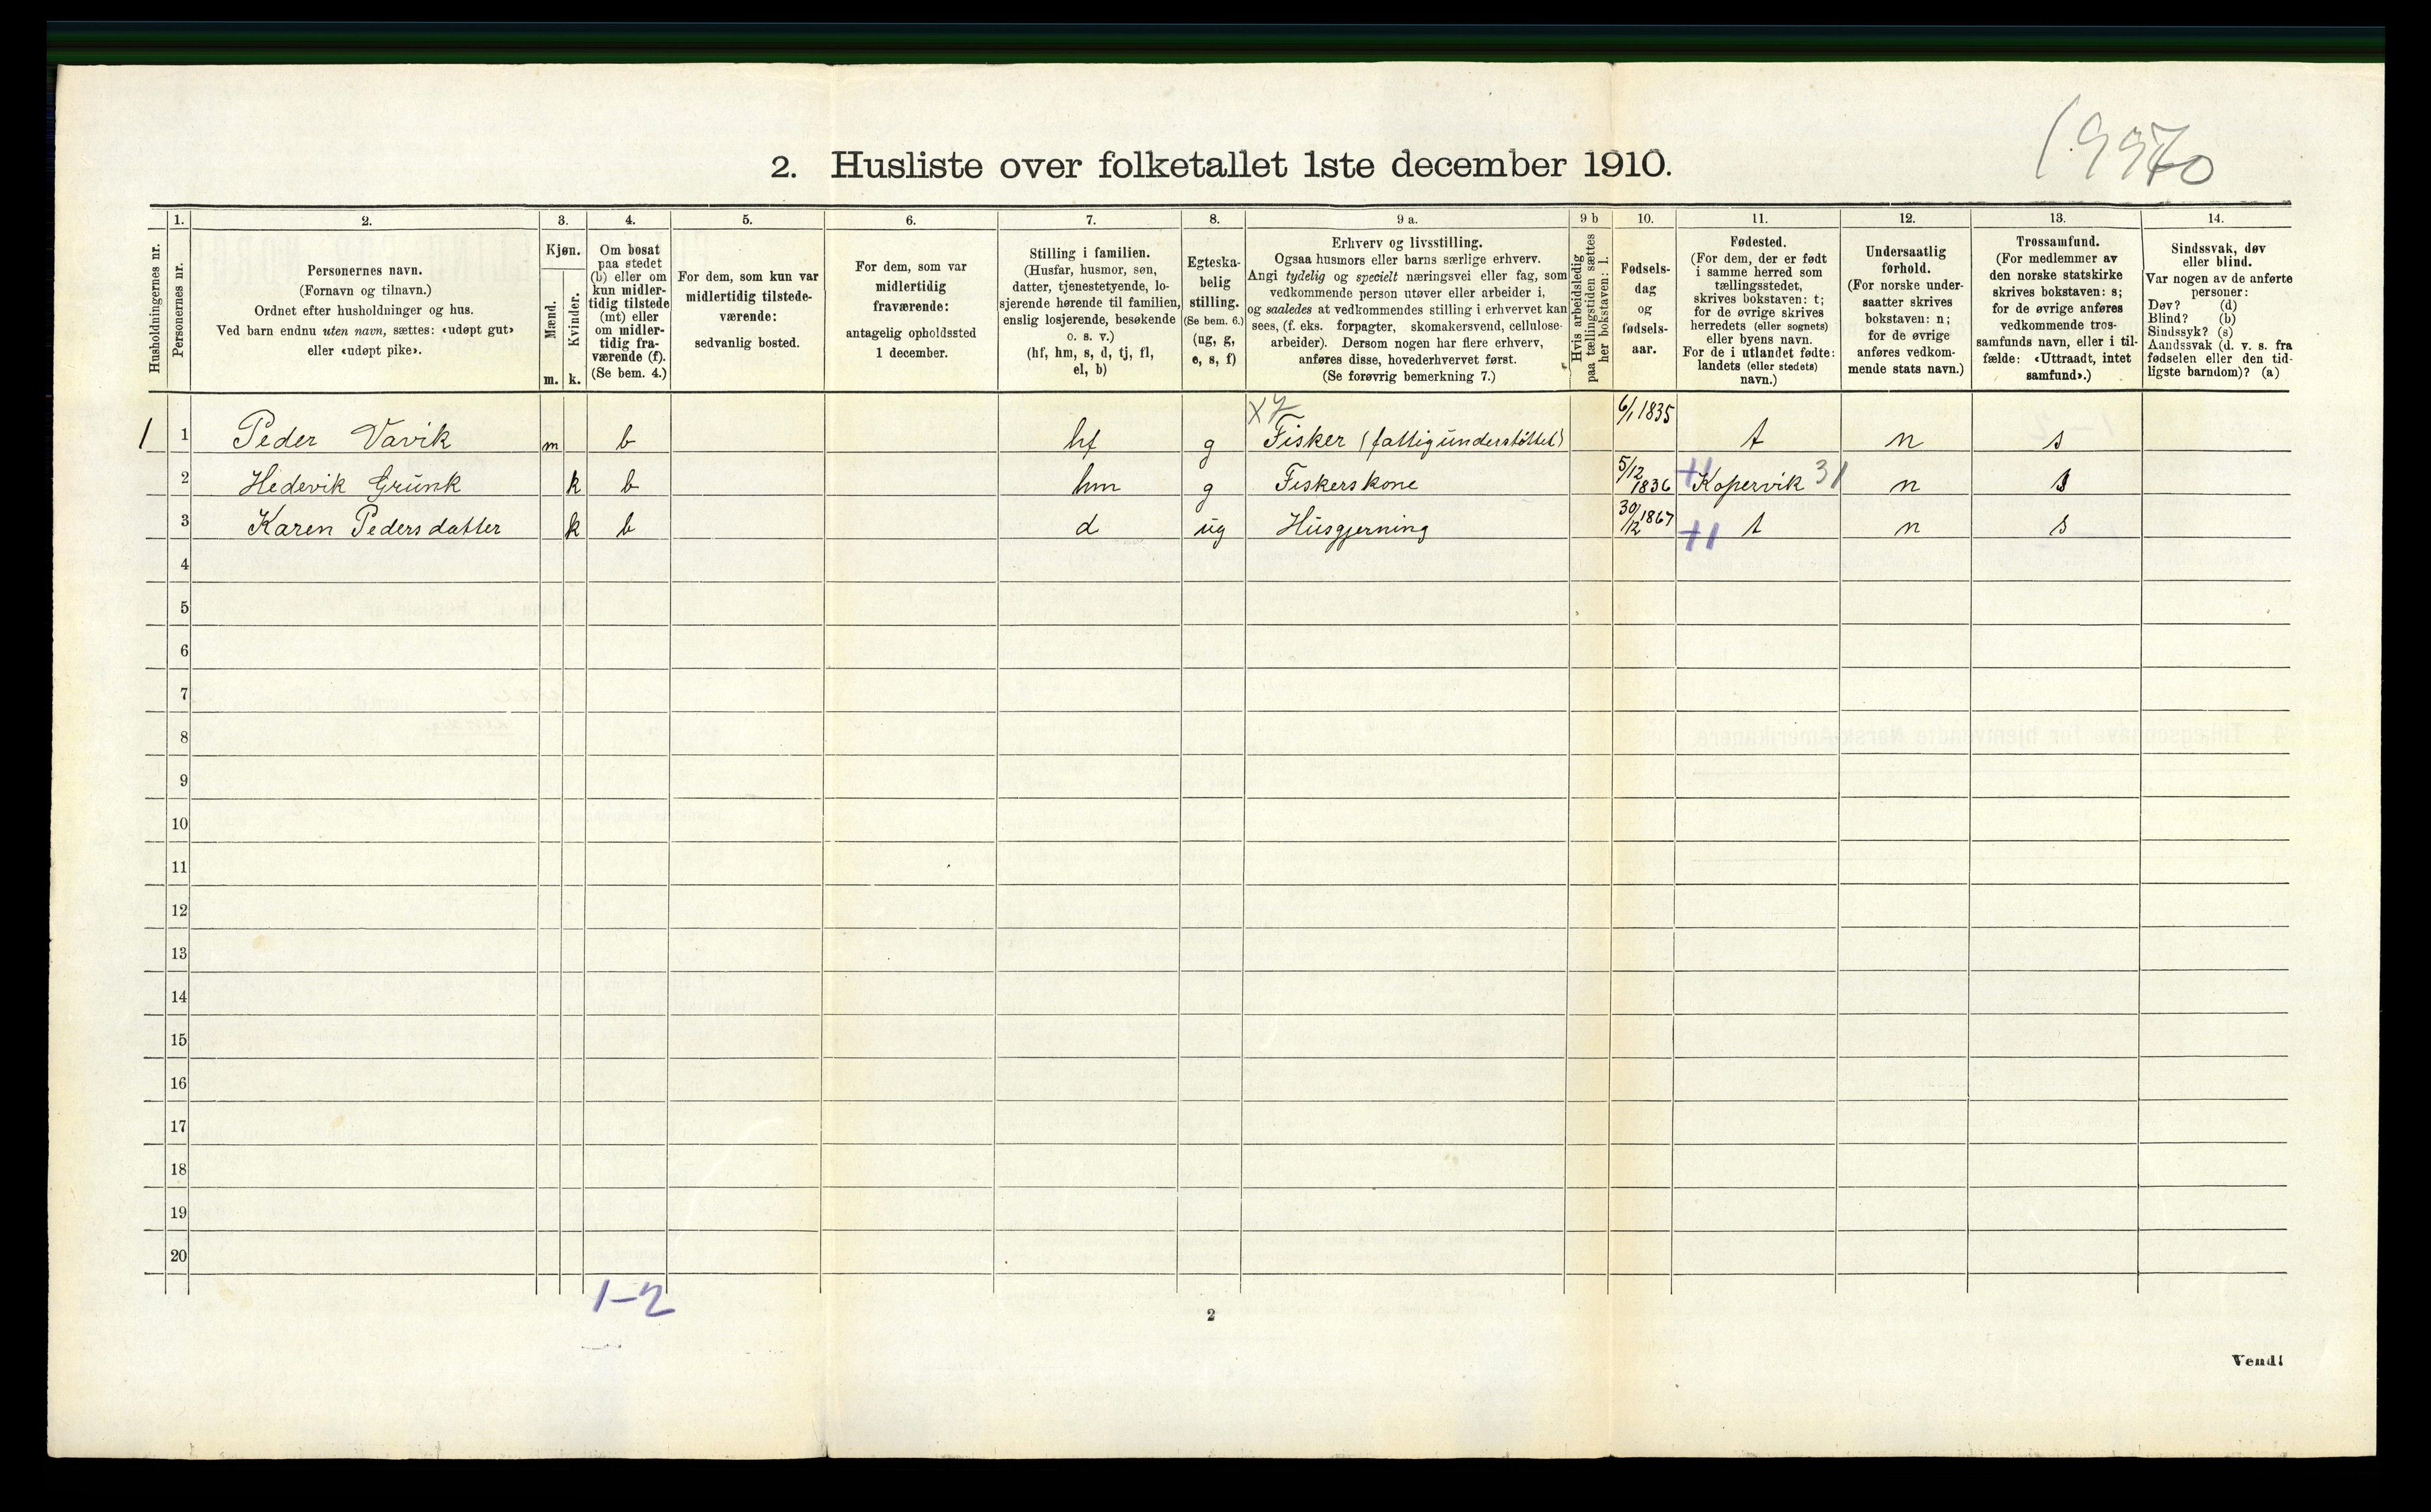 2. Husliste over folketallet 1ste december 1910.
Husholdningernes nr.
1.
Personernes nr.
2.
Personernes navn.
(Fornavn og tilnavn.)
Ordnet efter husholdninger og hus.
Ved barn endnu uten navn, sættes: «udøpt gut»
eller «udøpt pike».
3.
Kjøn.
Mænd.
Kvinder.
m. k.
4.
Om bosat
paa stedet
(b) eller om
kun midler-
tidig tilstede
(mt) eller
om midler-
tidig fra-
værende (f).
(Se bem. 4.)
5.
For dem, som kun var
midlertidig tilstede-
værende:
sedvanlig bosted.
6.
For dem, som var
midlertidig
fraværende:
antagelig opholdssted
1 december.
7.
Stilling i familien.
(Husfar, husmor, søn,
datter, tjenestetyende, lo-
sjerende hørende til familien,
enslig losjerende, besøkende
o. s. v.)
(hf, hm, s, d, tj, fl,
el, b)
8.
Egteska-
belig
stilling.
(Se bem. 6.)
(ug, g,
e, s, f)
9 a.
Erhverv og livsstilling.
Ogsaa husmors eller barns særlige erhverv.
Angi tydelig og specielt næringsvei eller fag, som
vedkommende person utøver eller arbeider i,
og saaledes at vedkommendes stilling i erhvervet kan
sees, (f. eks. forpagter, skomakersvend, cellulose-
arbeider). Dersom nogen har flere erhverv,
anføres disse, hovederhvervet først.
(Se forøvrig bemerkning 7.)
9 b
Hvis arbeidsledig
paa tællingstiden sættes
her bokstaven: l.
10.
Fødsels-
dag
og
fødsels-
aar.
11.
Fødested.
(For dem, der er født
i samme herred som
tællingsstedet,
skrives bokstaven: t;
for de øvrige skrives
herredets (eller sognets)
eller byens navn.
For de i utlandet fødte:
landets (eller stedets)
navn.)
12.
Undersaatlig
forhold.
(For norske under-
saatter skrives
bokstaven: n;
for de øvrige
anføres vedkom-
mende stats navn.)
13.
Trossamfund.
(For medlemmer av
den norske statskirke
skrives bokstaven: s;
for de øvrige anføres
vedkommende tros-
samfunds navn, eller i til-
fælde: «Uttraadt, intet
samfund».)
14.
Sindssvak, døv
eller blind.
Var nogen av de anførte
personer:
Døv? (d)
Blind? (b)
Sindssyk? (s)
Aandssvak (d. v. s. fra
fødselen eller den tid-
ligste barndom)? (a)
1 1 Peder Vavik m b hf g Fisker (fattigunderstöttet) 6/1 1835 t n s
2 Hedevik Grünk k b hm g Fiskerskone 5/12 1836 Kopervik 31 n s
3 Karen Pedersdatter k b d ug Husgjerning 30/12 1867 t n s
4
5
6
7
8
9
10
11
12
13
14
15
16
17
18
19
20
1-2
2
Vend!